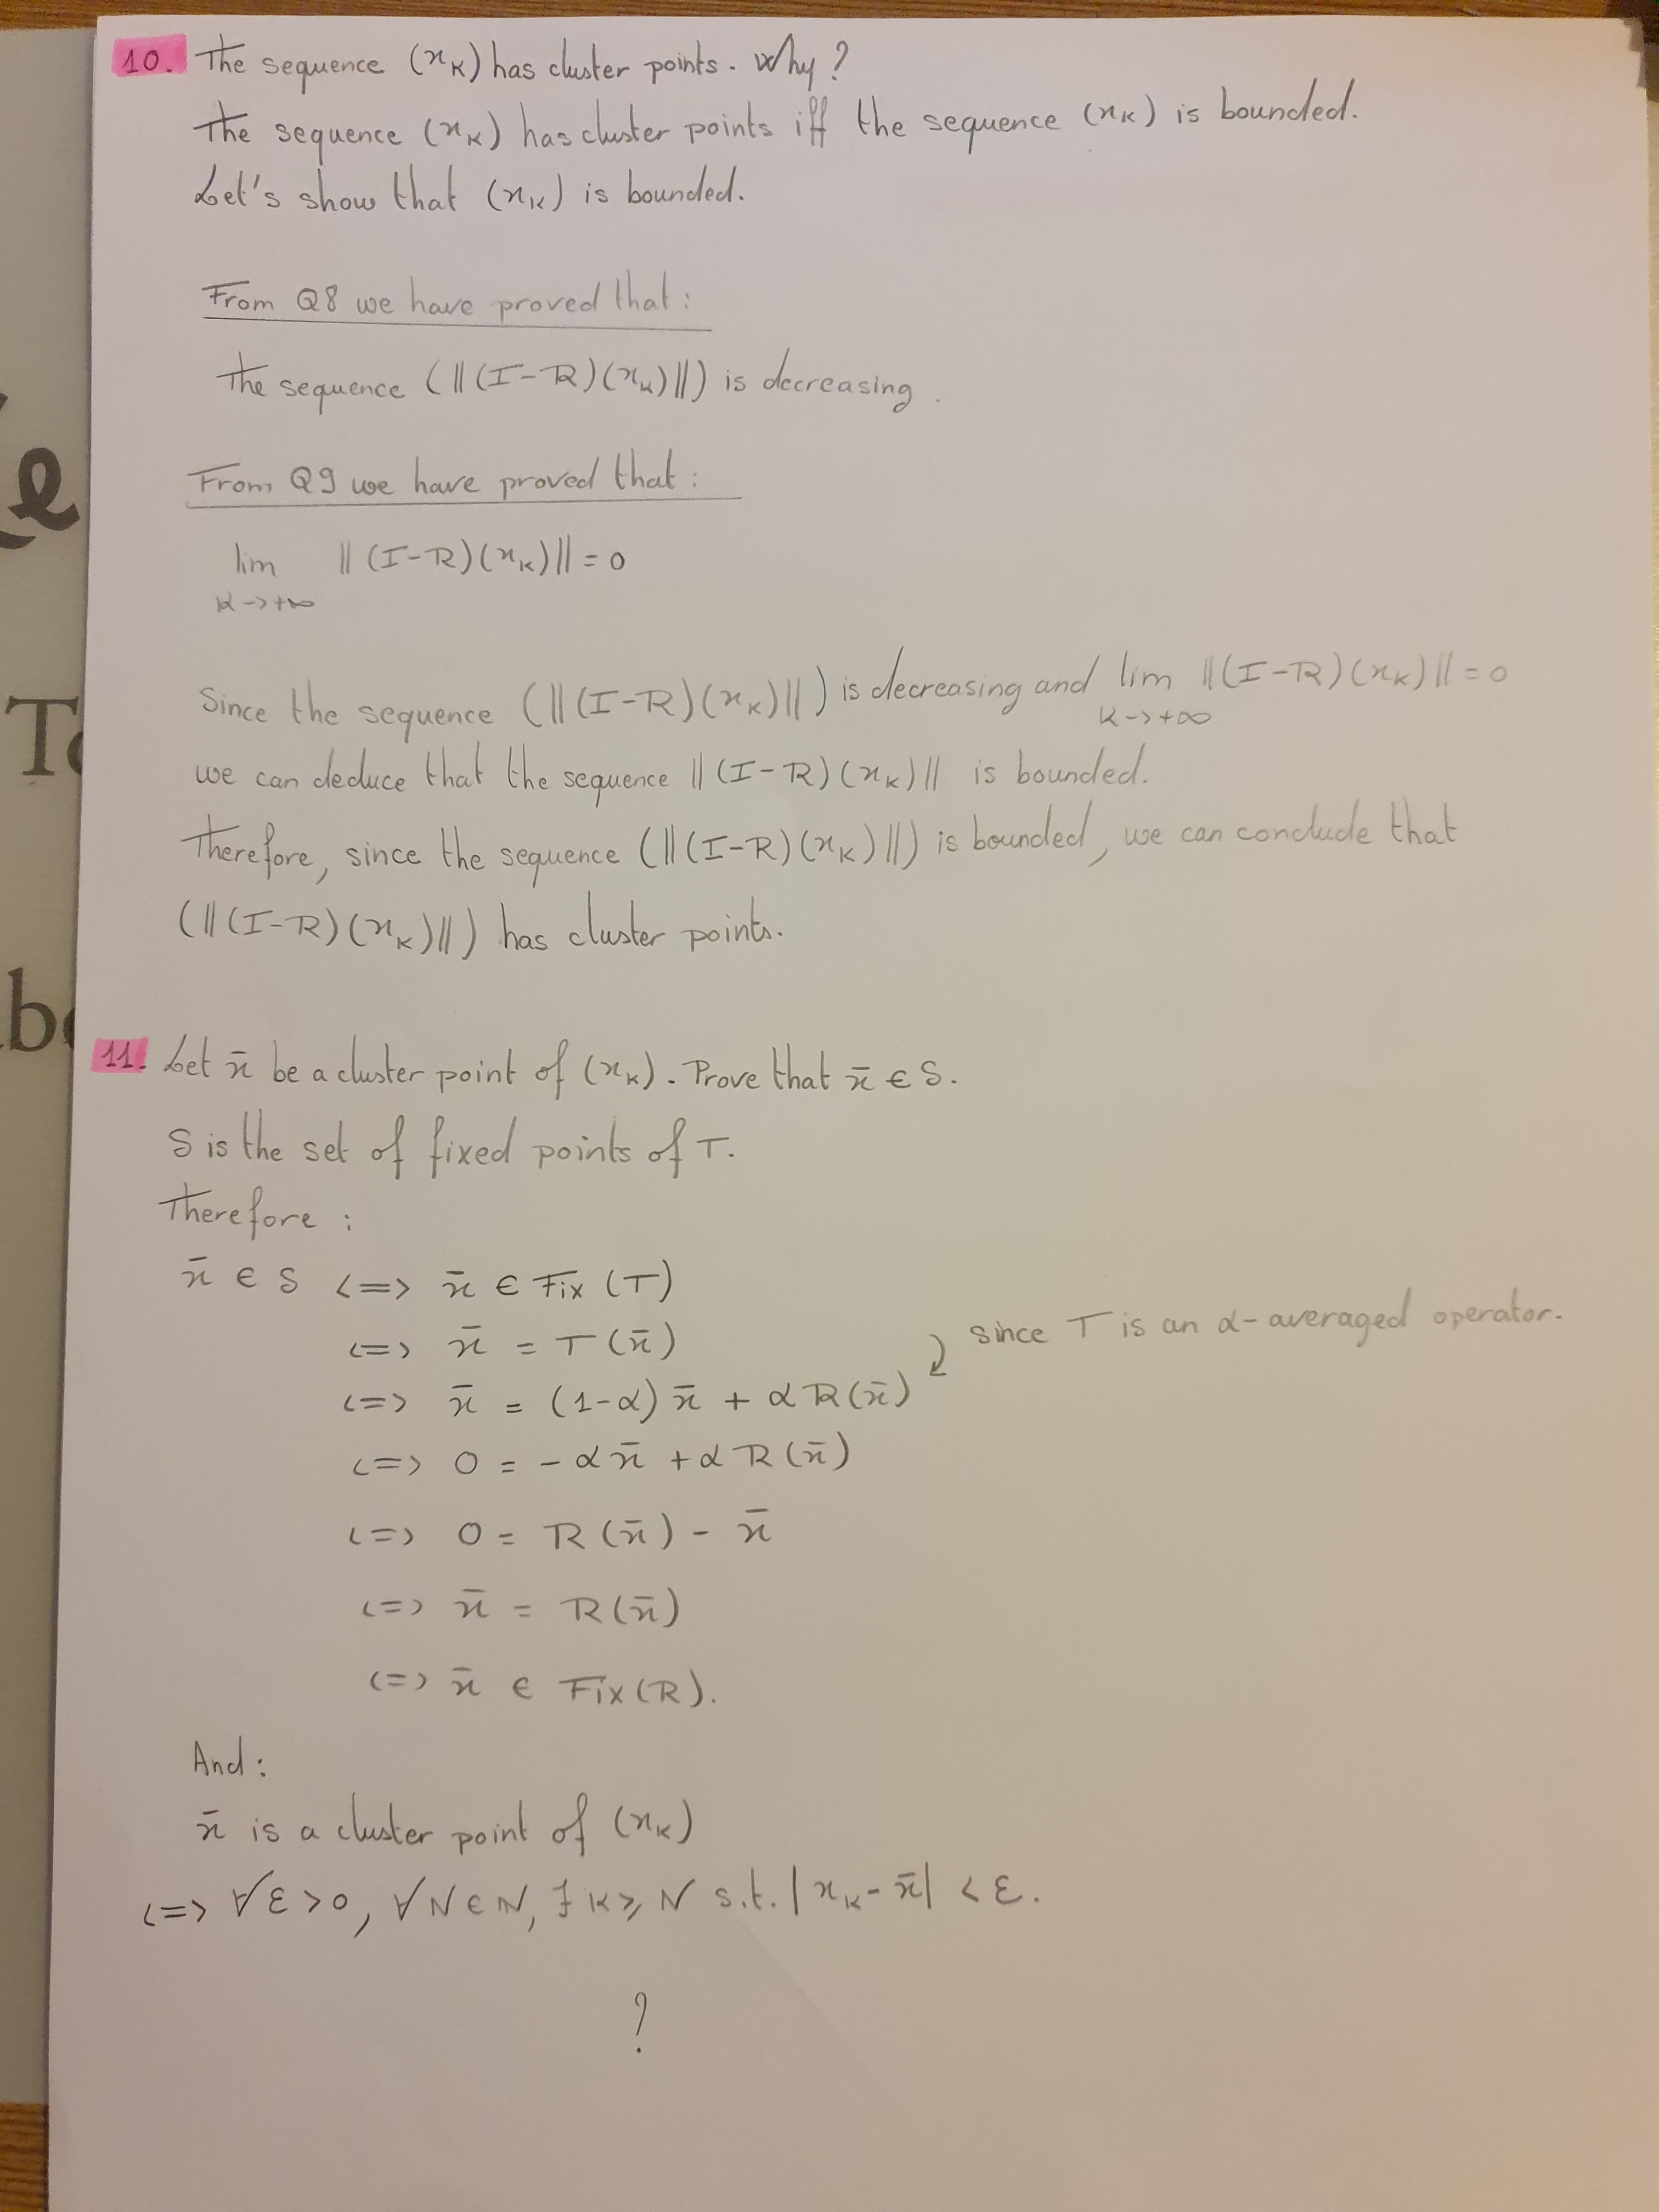 10. The sequence (xₖ) has cluster points. Why?
The sequence (xₖ) has cluster points iff the sequence (xₖ) is bounded.
Let's show that (xₖ) is bounded.
From Q8 we have proved that:
The sequence (||(I-R)(xₖ)||) is decreasing.
From Q9 we have proved that:
lim ||(I-R)(xₖ)|| = 0
K->+∞
Since the sequence (||(I-R)(xₖ)||) is decreasing and lim ||(I-R)(xₖ)|| = 0
K->+∞
we can deduce that the sequence ||(I-R)(xₖ)|| is bounded.
Therefore, since the sequence (||(I-R)(xₖ)||) is bounded, we can conclude that
(||(I-R)(xₖ)||) has cluster points.
11. Let x̄ be a cluster point of (xₖ). Prove that x̄ ∈ S.
S is the set of fixed points of T.
Therefore:
x̄ ∈ S <=> x̄ ∈ Fix(T)
<=> x̄ = T(x̄)
since T is an α-averaged operator.
<=> x̄ = (1-α) x̄ + α R(x̄)
<=> 0 = -α x̄ + α R(x̄)
<=> 0 = R(x̄) - x̄
<=> x̄ = R(x̄)
<=> x̄ ∈ Fix(R).
And:
x̄ is a cluster point of (xₖ)
<=> ∀ε>0, ∀N∈ℕ, ∃ K≥N s.t. |xₖ-x̄| < ε.
?
e
T
be